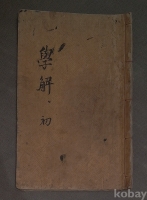 學解·初
kobay